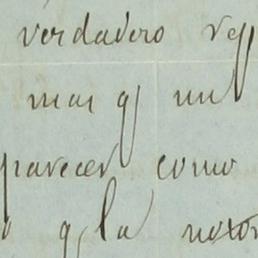 verdadero
mas q un
parecer como
q la notor